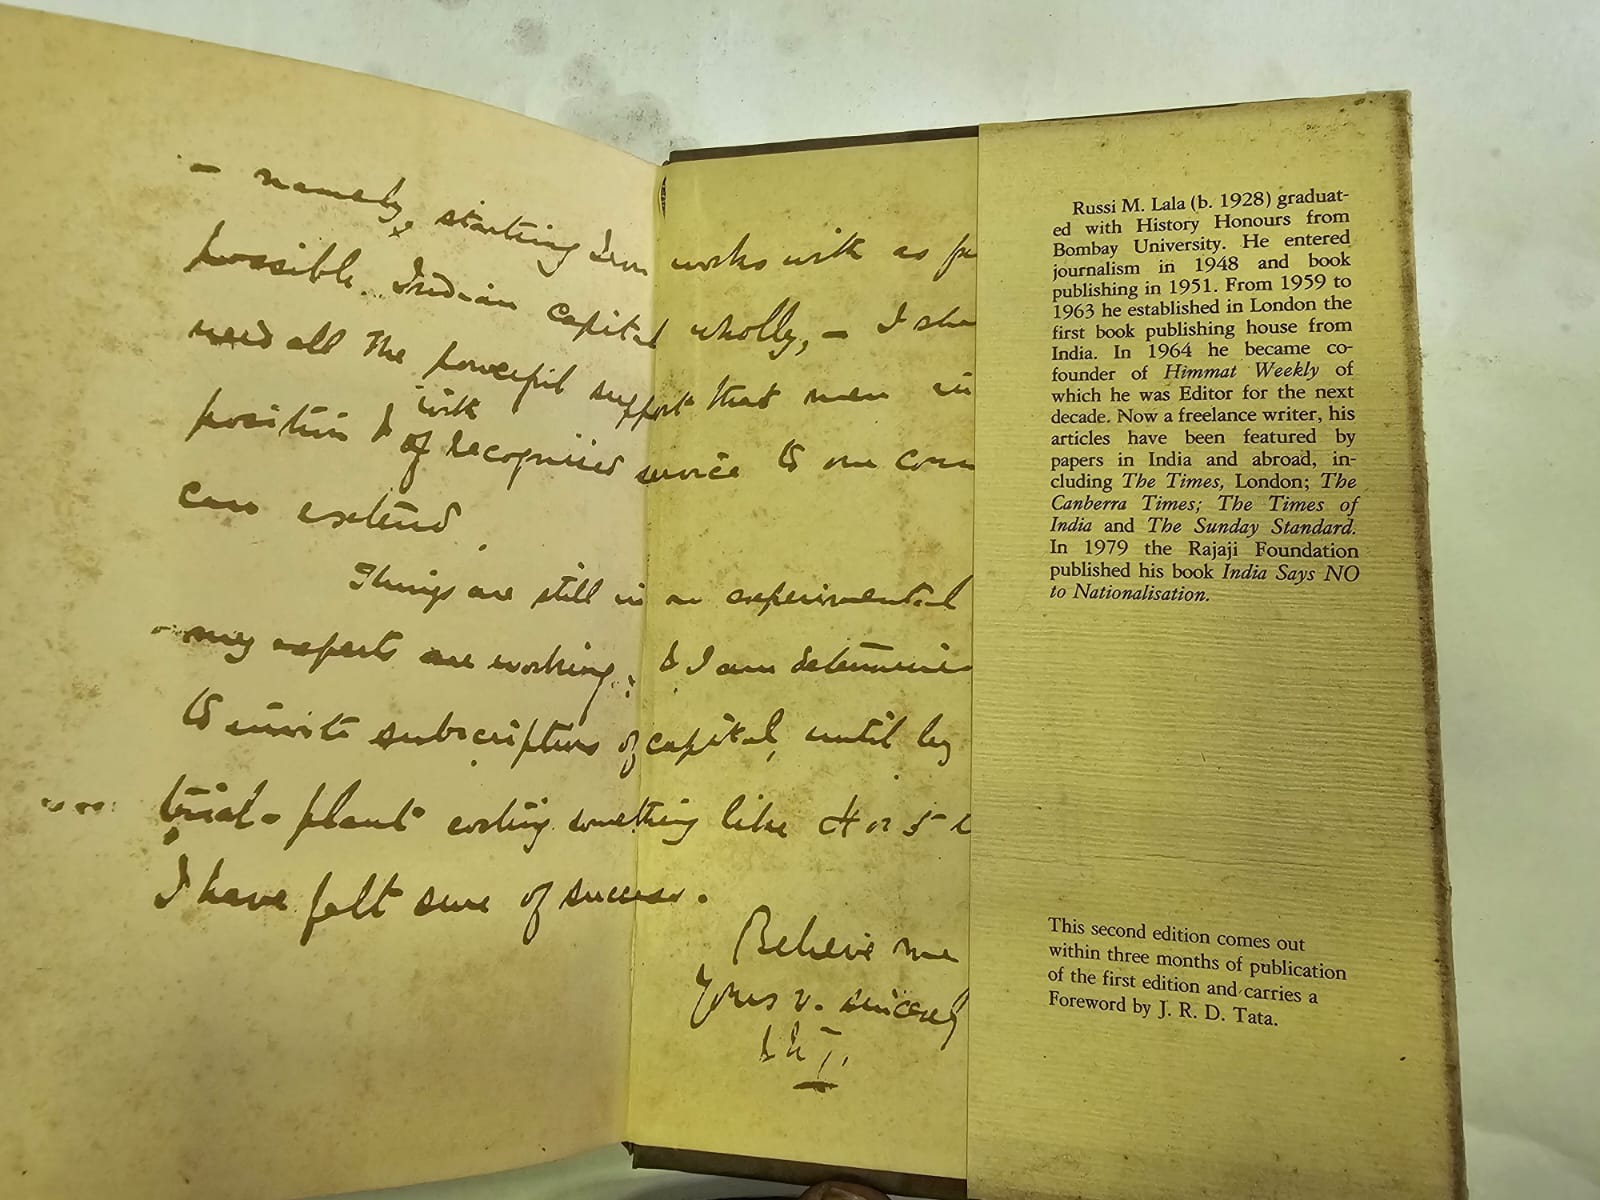 - namely, starting Iron works with as
possible Indian capital wholly, - I
need all the powerful support that men in
with
position & of recognised service to our
can extend.
Things are still in an experimental
my experts are working; & I am determined
to invite subscriptions of capital, until by
trial-plant costing something like 4 or 5
I have felt sure of success.
Believe me
Yours v. sincerely
Russi M. Lala (b. 1928) graduat-
ed with History Honours from
Bombay University. He entered
journalism in 1948 and book
publishing in 1951. From 1959 to
1963 he established in London the
first book publishing house from
India. In 1964 he became co-
founder of Himmat Weekly of
which he was Editor for the next
decade. Now a freelance writer, his
articles have been featured by
papers in India and abroad, in-
cluding The Times, London; The
Canberra Times; The Times of
India and The Sunday Standard.
In 1979 the Rajaji Foundation
published his book India Says NO
to Nationalisation.
This second edition comes out
within three months of publication
of the first edition and carries a
Foreword by J. R. D. Tata.